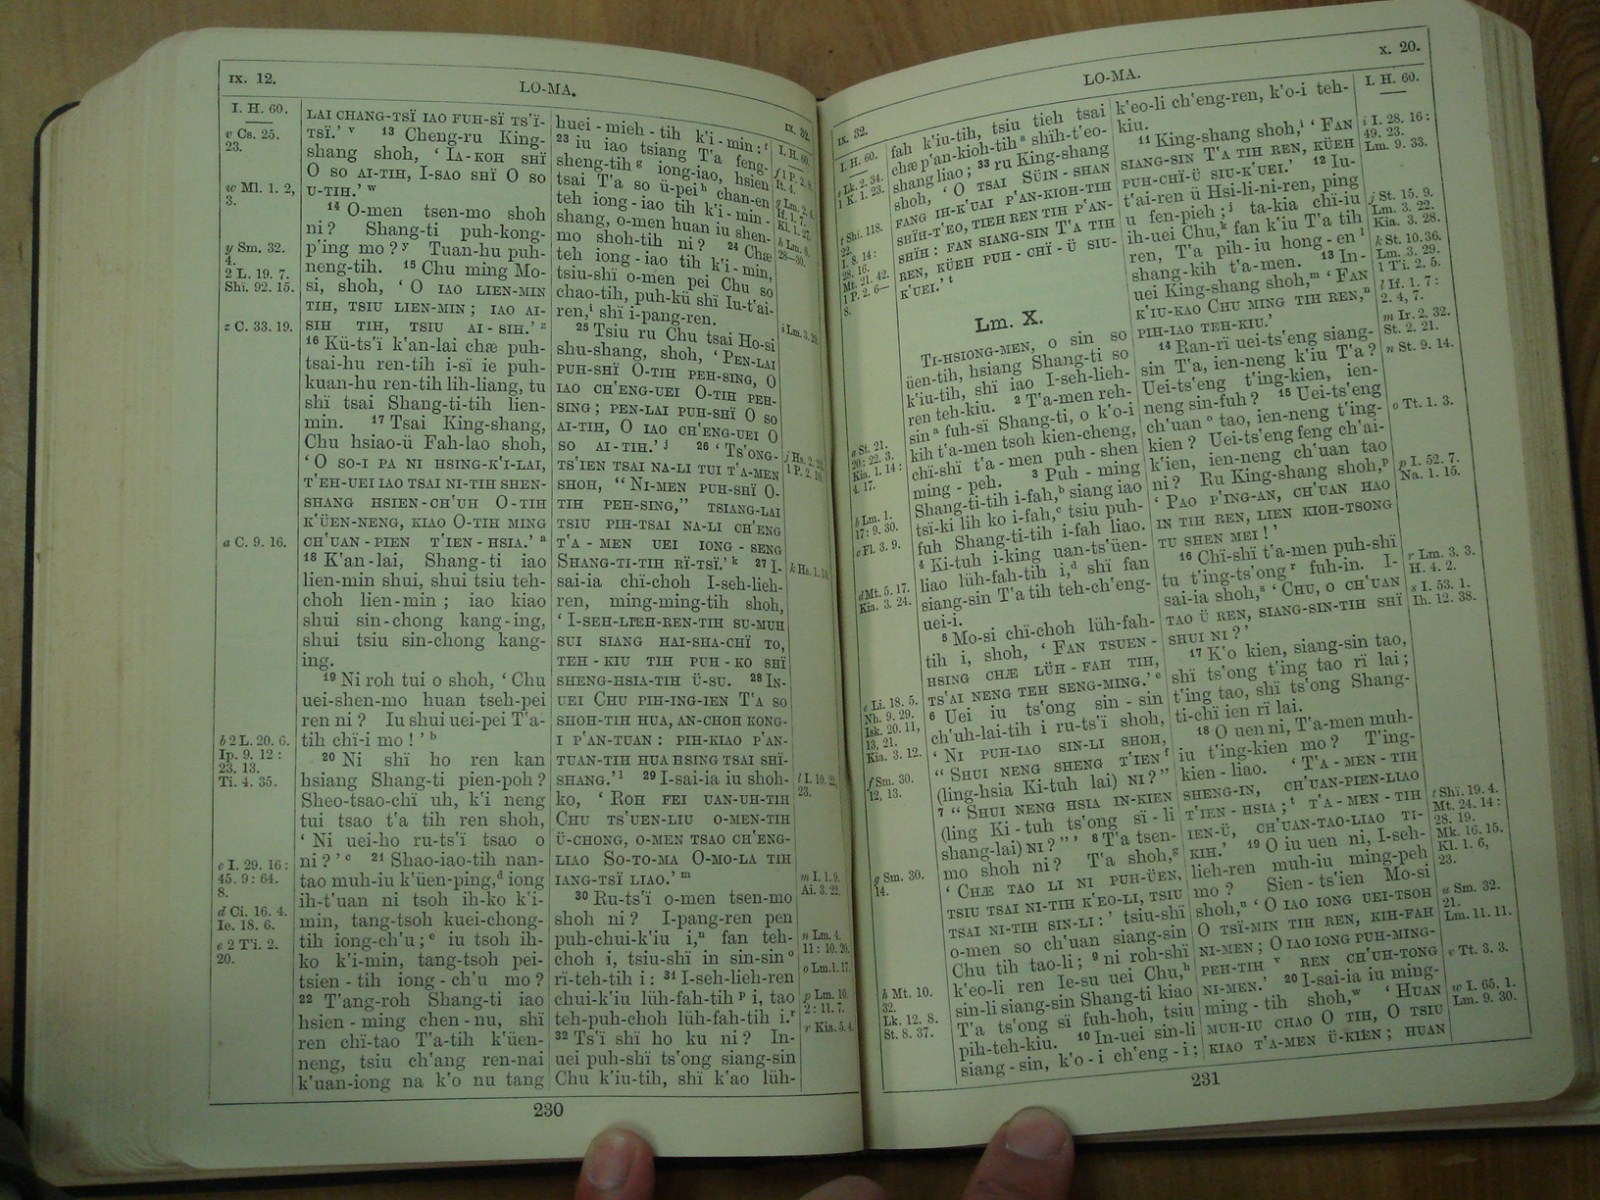 IX. 12.
LO-MA.
IX. 32.
I. H. 60.
v Cs. 25.
23.
w Ml. 1. 2,
3.
y Sm. 32.
4.
2 L. 19. 7.
Shï. 92. 15.
z C. 33. 19.
a C. 9. 16.
b 2 L. 20. 6.
Ip. 9. 12 :
23. 13.
Ti. 4. 35.
c I. 29. 16 :
45. 9 : 64.
8.
d Ci. 16. 4.
Ie. 18. 6.
e 2 T'i. 2.
20.
LAI CHANG-TSÏ IAO FUH-SÏ TS'Ï-
TSÏ.' v 13 Cheng-ru King-
shang shoh, ' IA-KOH SHÏ
O SO AI-TIH, I-SAO SHÏ O SO
U-TIH.' w
14 O-men tsen-mo shoh
ni ? Shang-ti puh-kong-
p'ing mo ? y Tuan-hu puh-
neng-tih. 15 Chu ming Mo-
si, shoh, ' O IAO LIEN-MIN
TIH, TSIU LIEN-MIN ; IAO AI-
SIH TIH, TSIU AI-SIH.' z
16 Kü-ts'ï k'an-lai chæ puh-
tsai-hu ren-tih i-sï ie puh-
kuan-hu ren-tih lih-liang, tu
shï tsai Shang-ti-tih lien-
min. 17 Tsai King-shang,
Chu hsiao-ü Fah-lao shoh,
' O SO-I PA NI HSING-K'I-LAI,
T'EH-UEI IAO TSAI NI-TIH SHEN-
SHANG HSIEN-CH'UH O-TIH
K'ÜEN-NENG, KIAO O-TIH MING
CH'UAN-PIEN T'IEN-HSIA.' a
18 K'an-lai, Shang-ti iao
lien-min shui, shui tsiu teh-
choh lien-min ; iao kiao
shui sin-chong kang-ing,
shui tsiu sin-chong kang-
ing.
19 Ni roh tui o shoh, ' Chu
uei-shen-mo huan tseh-pei
ren ni ? Iu shui uei-pei T'a-
tih chï-i mo ! ' b
20 Ni shï ho ren kan
hsiang Shang-ti pien-poh ?
Sheo-tsao-chï uh, k'i neng
tui tsao t'a tih ren shoh,
' Ni uei-ho ru-ts'ï tsao o
ni ? ' c 21 Shao-iao-tih nan-
tao muh-iu k'üen-ping,d iong
ih-t'uan ni tsoh ih-ko k'i-
min, tang-tsoh kuei-chong-
tih iong-ch'u ; e iu tsoh ih-
ko k'i-min, tang-tsoh pei-
tsien-tih iong-ch'u mo ?
22 T'ang-roh Shang-ti iao
hsien-ming chen-nu, shï
ren chï-tao T'a-tih k'üen-
neng, tsiu ch'ang ren-nai
k'uan-iong na k'o nu tang
huei-mieh-tih k'i-min : f
23 iu iao tsiang T'a feng-
sheng-tih g iong-iao, hsien
tsai T'a so ü-pei h chan-en
teh iong-iao tih k'i-min-
shang, o-men huan iu shen-
mo shoh-tih ni ? 24 Chæ
teh iong-iao tih k'i-min,
tsiu-shï o-men pei Chu so
chao-tih, puh-kü shï Iu-t'ai-
ren,i shï i-pang-ren.
25 Tsiu ru Chu tsai Ho-si
shu-shang, shoh, ' PEN-LAI
PUH-SHÏ O-TIH PEH-SING, O
IAO CH'ENG-UEI O-TIH PEH-
SING ; PEN-LAI PUH-SHÏ O SO
AI-TIH, O IAO CH'ENG-UEI O
SO AI-TIH.' j 26 ' TS'ONG-
TS'IEN TSAI NA-LI TUI T'A-MEN
SHOH, “ NI-MEN PUH-SHÏ O-
TIH PEH-SING,” TSIANG-LAI
TSIU PIH-TSAI NA-LI CH'ENG
T'A-MEN UEI IONG-SENG
SHANG-TI-TIH RÏ-TSÏ.' k 27 I-
sai-ia chï-choh I-seh-lieh-
ren, ming-ming-tih shoh,
' I-SEH-LIEH-REN-TIH SU-MUH
SUI SIANG HAI-SHA-CHÏ TO,
TEH-KIU TIH PUH-KO SHÏ
SHENG-HSIA-TIH Ü-SU. 28 IN-
UEI CHU PIH-ING-IEN T'A SO
SHOH-TIH HUA, AN-CHOH KONG-
I P'AN-TUAN : PIH-KIAO P'AN-
TUAN-TIH HUA HSING TSAI SHÏ-
SHANG.' l 29 I-sai-ia iu shoh-
ko, ' ROH FEI UAN-UH-TIH
CHU TS'UEN-LIU O-MEN-TIH
Ü-CHONG, O-MEN TSAO CH'ENG-
LIAO SO-TO-MA O-MO-LA TIH
IANG-TSÏ LIAO.' m
30 Ru-ts'ï o-men tsen-mo
shoh ni ? I-pang-ren pen
puh-chui-k'iu i,n fan teh-
choh i, tsiu-shï in sin-sin o
rï-teh-tih i : 31 I-seh-lieh-ren
chui-k'iu lüh-fah-tih p i, tao
teh-puh-choh lüh-fah-tih i.r
32 Ts'ï shï ho ku ni ? In-
uei puh-shï ts'ong siang-sin
Chu k'iu-tih, shï k'ao lüh-
I. H. 60.
i Lm. 3. 29.
k Hs. 1. 10.
l I. 10. 22,
23.
m I. 1. 9.
Ai. 3. 22.
n Lm. 4.
11 : 10. 20.
o Lm. 1. 17.
p Lm. 10.
2 : 11. 7.
r Kia. 5. 4.
230
IX. 32.
LO-MA.
X. 20.
I. H. 60.
s Lk. 2. 34.
1 K. 1. 23.
t Shï. 118.
22.
I. 8. 14 :
28. 16.
Mt. 21. 42.
1 P. 2. 6—
8.
a St. 21.
20 : 22. 3.
Kia. 1. 14 :
4. 17.
b Lm. 1.
17 : 9. 30.
c Fl. 3. 9.
d Mt. 5. 17.
Kia. 3. 24.
e Li. 18. 5.
Nh. 9. 29.
Isk. 20. 11,
13, 21.
Kia. 3. 12.
f Sm. 30.
12, 13.
g Sm. 30.
14.
h Mt. 10.
32.
Lk. 12. 8.
St. 8. 37.
fah k'iu-tih, tsiu tieh tsai
chæ p'an-kioh-tih s shïh-t'eo-
shang liao ; 33 ru King-shang
shoh, ' O TSAI SÜIN-SHAN
FANG IH-K'UAI P'AN-KIOH-TIH
SHÏH-T'EO, TIEH REN TIH P'AN-
SHÏH : FAN SIANG-SIN T'A TIH
REN, KÜEH PUH-CHÏ-Ü SIU-
K'UEI.' t
LM. X.
TI-HSIONG-MEN, o sin so
üen-tih, hsiang Shang-ti so
k'iu-tih, shï iao I-seh-lieh-
ren teh-kiu. 2 T'a-men reh-
sin a fuh-sï Shang-ti, o k'o-i
kih t'a-men tsoh kien-cheng,
chï-shï t'a-men puh-shen
ming-peh. 3 Puh-ming
Shang-ti-tih i-fah,b siang iao
tsï-ki lih ko i-fah,c tsiu puh-
fuh Shang-ti-tih i-fah liao.
4 Ki-tuh i-king uan-ts'üen-
liao lüh-fah-tih i,d shï fan
siang-sin T'a tih teh-ch'eng-
uei-i.
5 Mo-si chï-choh lüh-fah-
tih i, shoh, ' FAN TSUEN-
HSING CHÆ LÜH-FAH TIH,
TS'AI NENG TEH SENG-MING.' e
6 Uei iu ts'ong sin-sin
ch'uh-lai-tih i ru-ts'ï shoh,
' NI PUH-IAO SIN-LI SHOH,
“ SHUI NENG SHENG T'IEN f
(ling-hsia Ki-tuh lai) NI ? ”
7 “ SHUI NENG HSIA IN-KIEN
(ling Ki-tuh ts'ong sï-li
shang-lai) NI ? ” ' 8 T'a tsen-
mo shoh ni ? T'a shoh,g
' CHÆ TAO LI NI PUH-ÜEN,
TSIU TSAI NI-TIH K'EO-LI, TSIU
TSAI NI-TIH SIN-LI : ' tsiu-shï
o-men so ch'uan siang-sin
Chu tih tao-li ; 9 ni roh-shï
k'eo-li ren Ie-su uei Chu,h
sin-li siang-sin Shang-ti kiao
T'a ts'ong sï fuh-hoh, tsiu
pih-teh-kiu. 10 In-uei sin-li
siang-sin, k'o-i ch'eng-i ;
k'eo-li ch'eng-ren, k'o-i teh-
kiu.
11 King-shang shoh,i ' FAN
SIANG-SIN T'A TIH REN, KÜEH
PUH-CHÏ-Ü SIU-K'UEI.' 12 Iu-
t'ai-ren ü Hsi-li-ni-ren, ping
u fen-pieh ; j ta-kia chï-iu
ih-uei Chu,k fan k'iu T'a tih
ren, T'a pih-iu hong-en l
shang-kih t'a-men. 13 In-
uei King-shang shoh,m ' FAN
K'IU-KAO CHU MING TIH REN,n
PIH-IAO TEH-KIU.'
14 Ran-rï uei-ts'eng siang-
sin T'a, ien-neng k'iu T'a ?
Uei-ts'eng t'ing-kien, ien-
neng sin-fuh ? 15 Uei-ts'eng
ch'uan o tao, ien-neng t'ing-
kien ? Uei-ts'eng feng ch'ai-
k'ien, ien-neng ch'uan tao
ni ? Ru King-shang shoh,p
' PAO P'ING-AN, CH'UAN HAO
IN TIH REN, LIEN KIOH-TSONG
TU SHEN MEI ! '
16 Chï-shï t'a-men puh-shï
tu t'ing-ts'ong r fuh-in. I-
sai-ia shoh,s ' CHU, O CH'UAN
TAO Ü REN, SIANG-SIN-TIH SHÏ
SHUI NI ? '
17 K'o kien, siang-sin tao,
shï ts'ong t'ing tao rï lai ;
t'ing tao, shï ts'ong Shang-
ti-chï ien rï lai.
18 O uen ni, T'a-men muh-
iu t'ing-kien mo ? T'ing-
kien-liao. ' T'A-MEN-TIH
SHENG-IN, CH'UAN-PIEN-LIAO
T'IEN-HSIA ; t T'A-MEN-TIH
IEN-Ü, CH'UAN-TAO-LIAO TI-
KIH.' 19 O iu uen ni, I-seh-
lieh-ren muh-iu ming-peh
mo ? Sien-ts'ien Mo-si
shoh,u ' O IAO IONG UEI-TSOH
O TSÏ-MIN TIH REN, KIH-FAH
NI-MEN ; O IAO IONG PUH-MING-
PEH-TIH v REN CH'UH-TONG
NI-MEN.' 20 I-sai-ia iu ming-
ming-tih shoh,w ' HUAN
MUH-IU CHAO O TIH, O TSIU
KIAO T'A-MEN Ü-KIEN ; HUAN
I. H. 60.
i I. 28. 16 :
49. 23.
Lm. 9. 33.
j St. 15. 9.
Lm. 3. 22.
Kia. 3. 28.
k St. 10. 36.
Lm. 3. 29.
1 Ti. 2. 5.
l If. 1. 7 :
2. 4, 7.
m Ir. 2. 32.
St. 2. 21.
n St. 9. 14.
o Tt. 1. 3.
p I. 52. 7.
Na. 1. 15.
r Lm. 3. 3.
H. 4. 2.
s I. 53. 1.
Ih. 12. 38.
t Shï. 19. 4.
Mt. 24. 14 :
28. 19.
Mk. 16. 15.
Kl. 1. 6,
23.
u Sm. 32.
21.
Lm. 11. 11.
v Tt. 3. 3.
w I. 65. 1.
Lm. 9. 30.
231